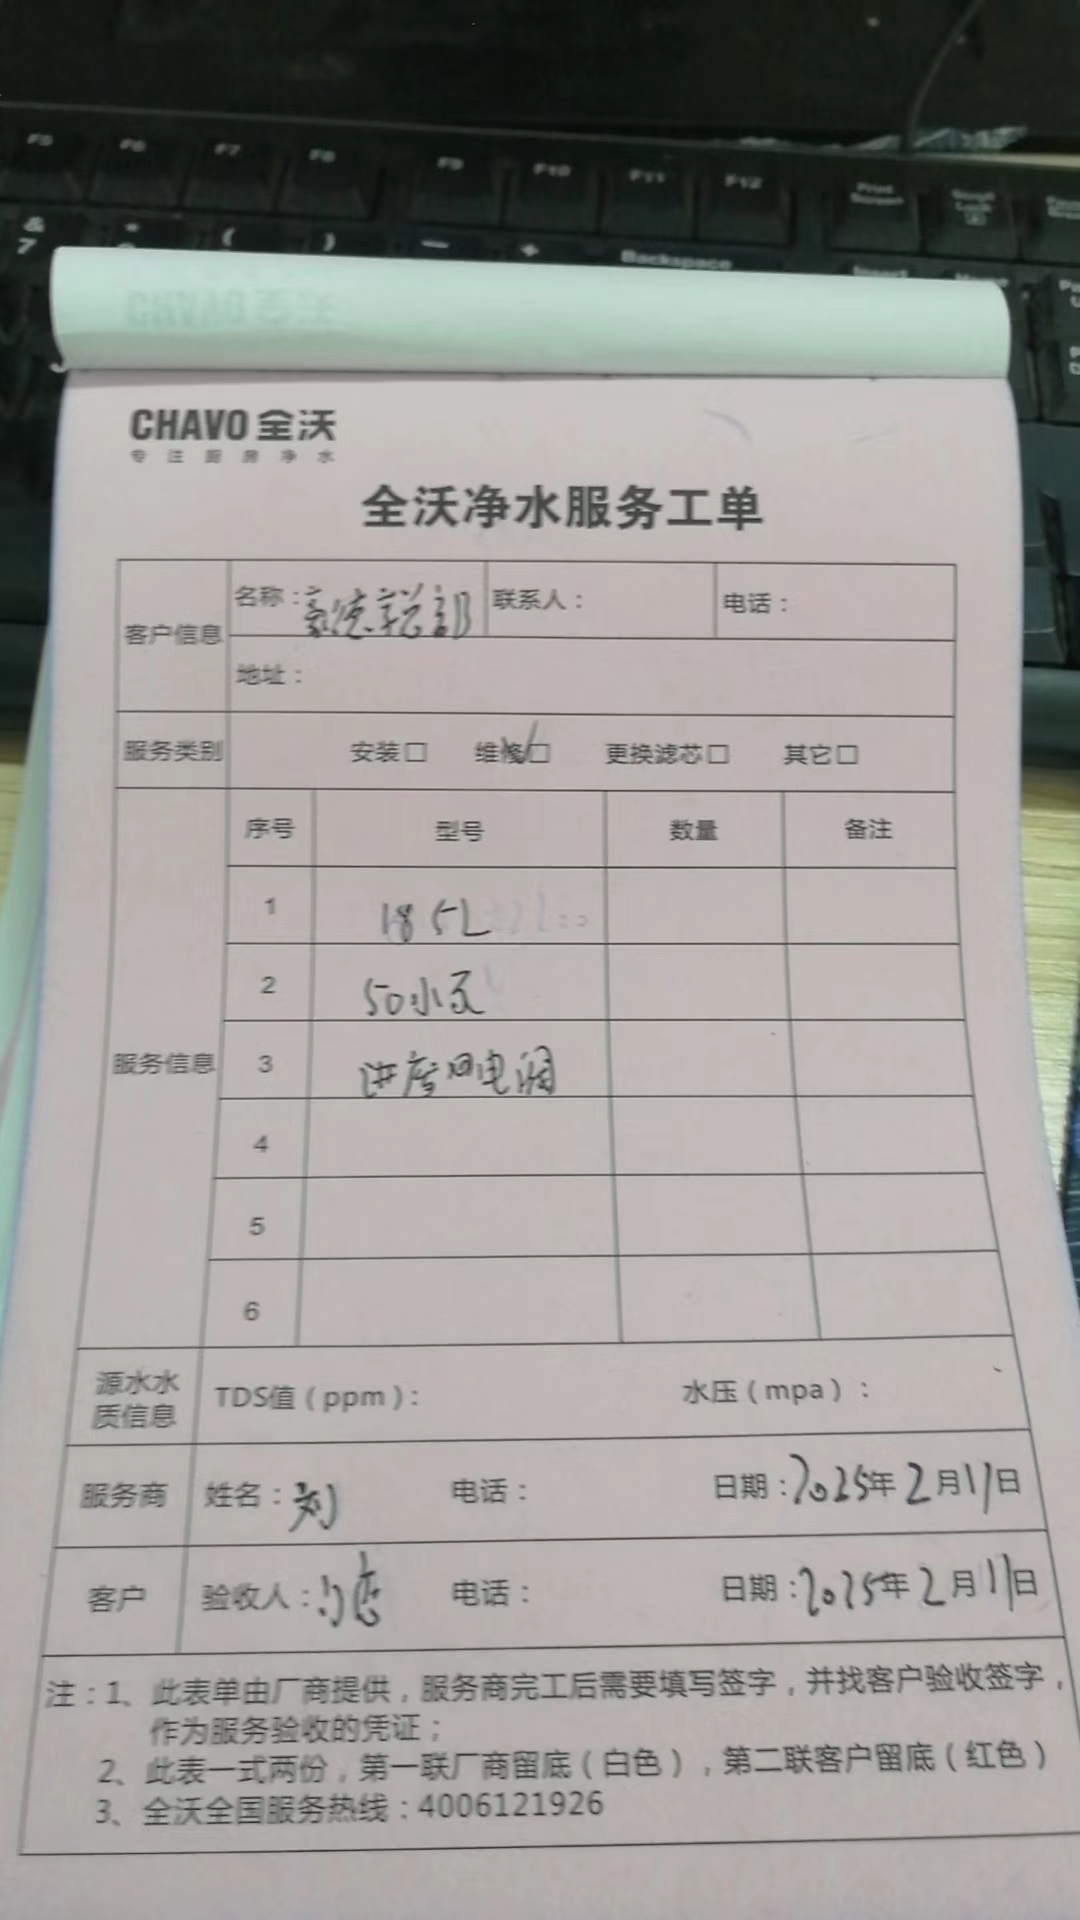 F5 F6 F7 F8 F9 F10 F11 F12 Print Screen Scroll Lock
& 7 * ( ) — + Backspace Insert Home
CHAVO 全沃
CHAVO 全沃
专注厨房净水
全沃净水服务工单
客户信息 名称：豪德总部 联系人： 电话：
地址：
服务类别 安装□ 维修□ 更换滤芯□ 其它□
服务信息 序号 型号 数量 备注
1 185L
2 50小瓦
3 进 电阀
4
5
6
源水水质信息 TDS值（ppm）： 水压（mpa）：
服务商 姓名：刘 电话： 日期：2025年2月11日
客户 验收人： 电话： 日期：2025年2月11日
注：1、此表单由厂商提供，服务商完工后需要填写签字，并找客户验收签字，
作为服务验收的凭证；
2、此表一式两份，第一联厂商留底（白色），第二联客户留底（红色）
3、全沃全国服务热线：4006121926